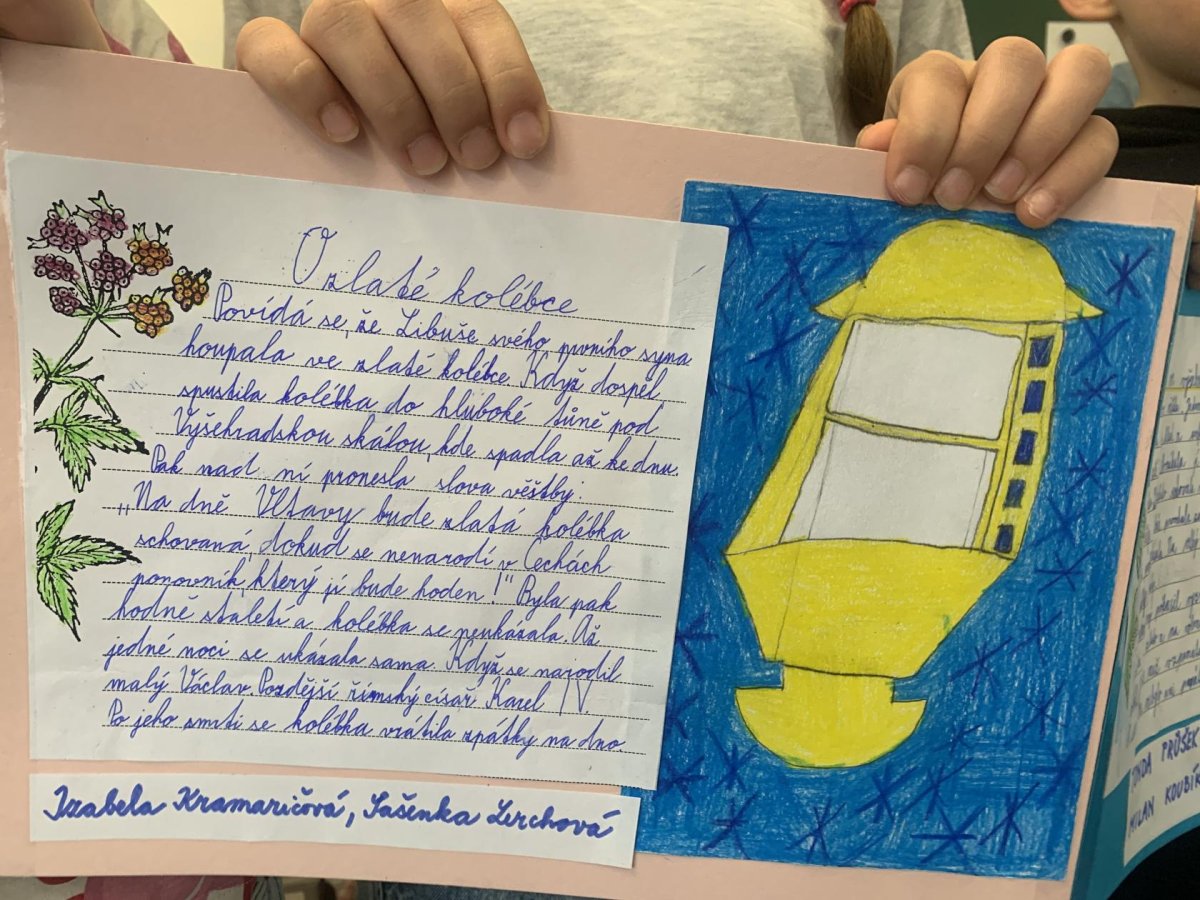 O zlaté kolébce
Povídá se, že Libuše svého prvního syna
houpala ve zlaté kolébce. Když dospěl
spustila kolébka do hluboké tůně pod
Vyšehradskou skálou, kde spadla až ke dnu.
Pak nad ní pronesla slova věštby:
„Na dně Vltavy bude zlatá kolébka
schovaná, dokud se nenarodí v Čechách
panovník, který jí bude hoden!" Byla pak
hodně staletí a kolébka se neukázala. Až
jedné noci se ukázala sama. Když se narodil
malý Václav. Pozdější římský císař Karel IV.
Po jeho smrti se kolébka vrátila zpátky na dno.
Izabela Kramaričová, Sašenka Lerchová
PRŮŠEK
MILAN KOUBÍ